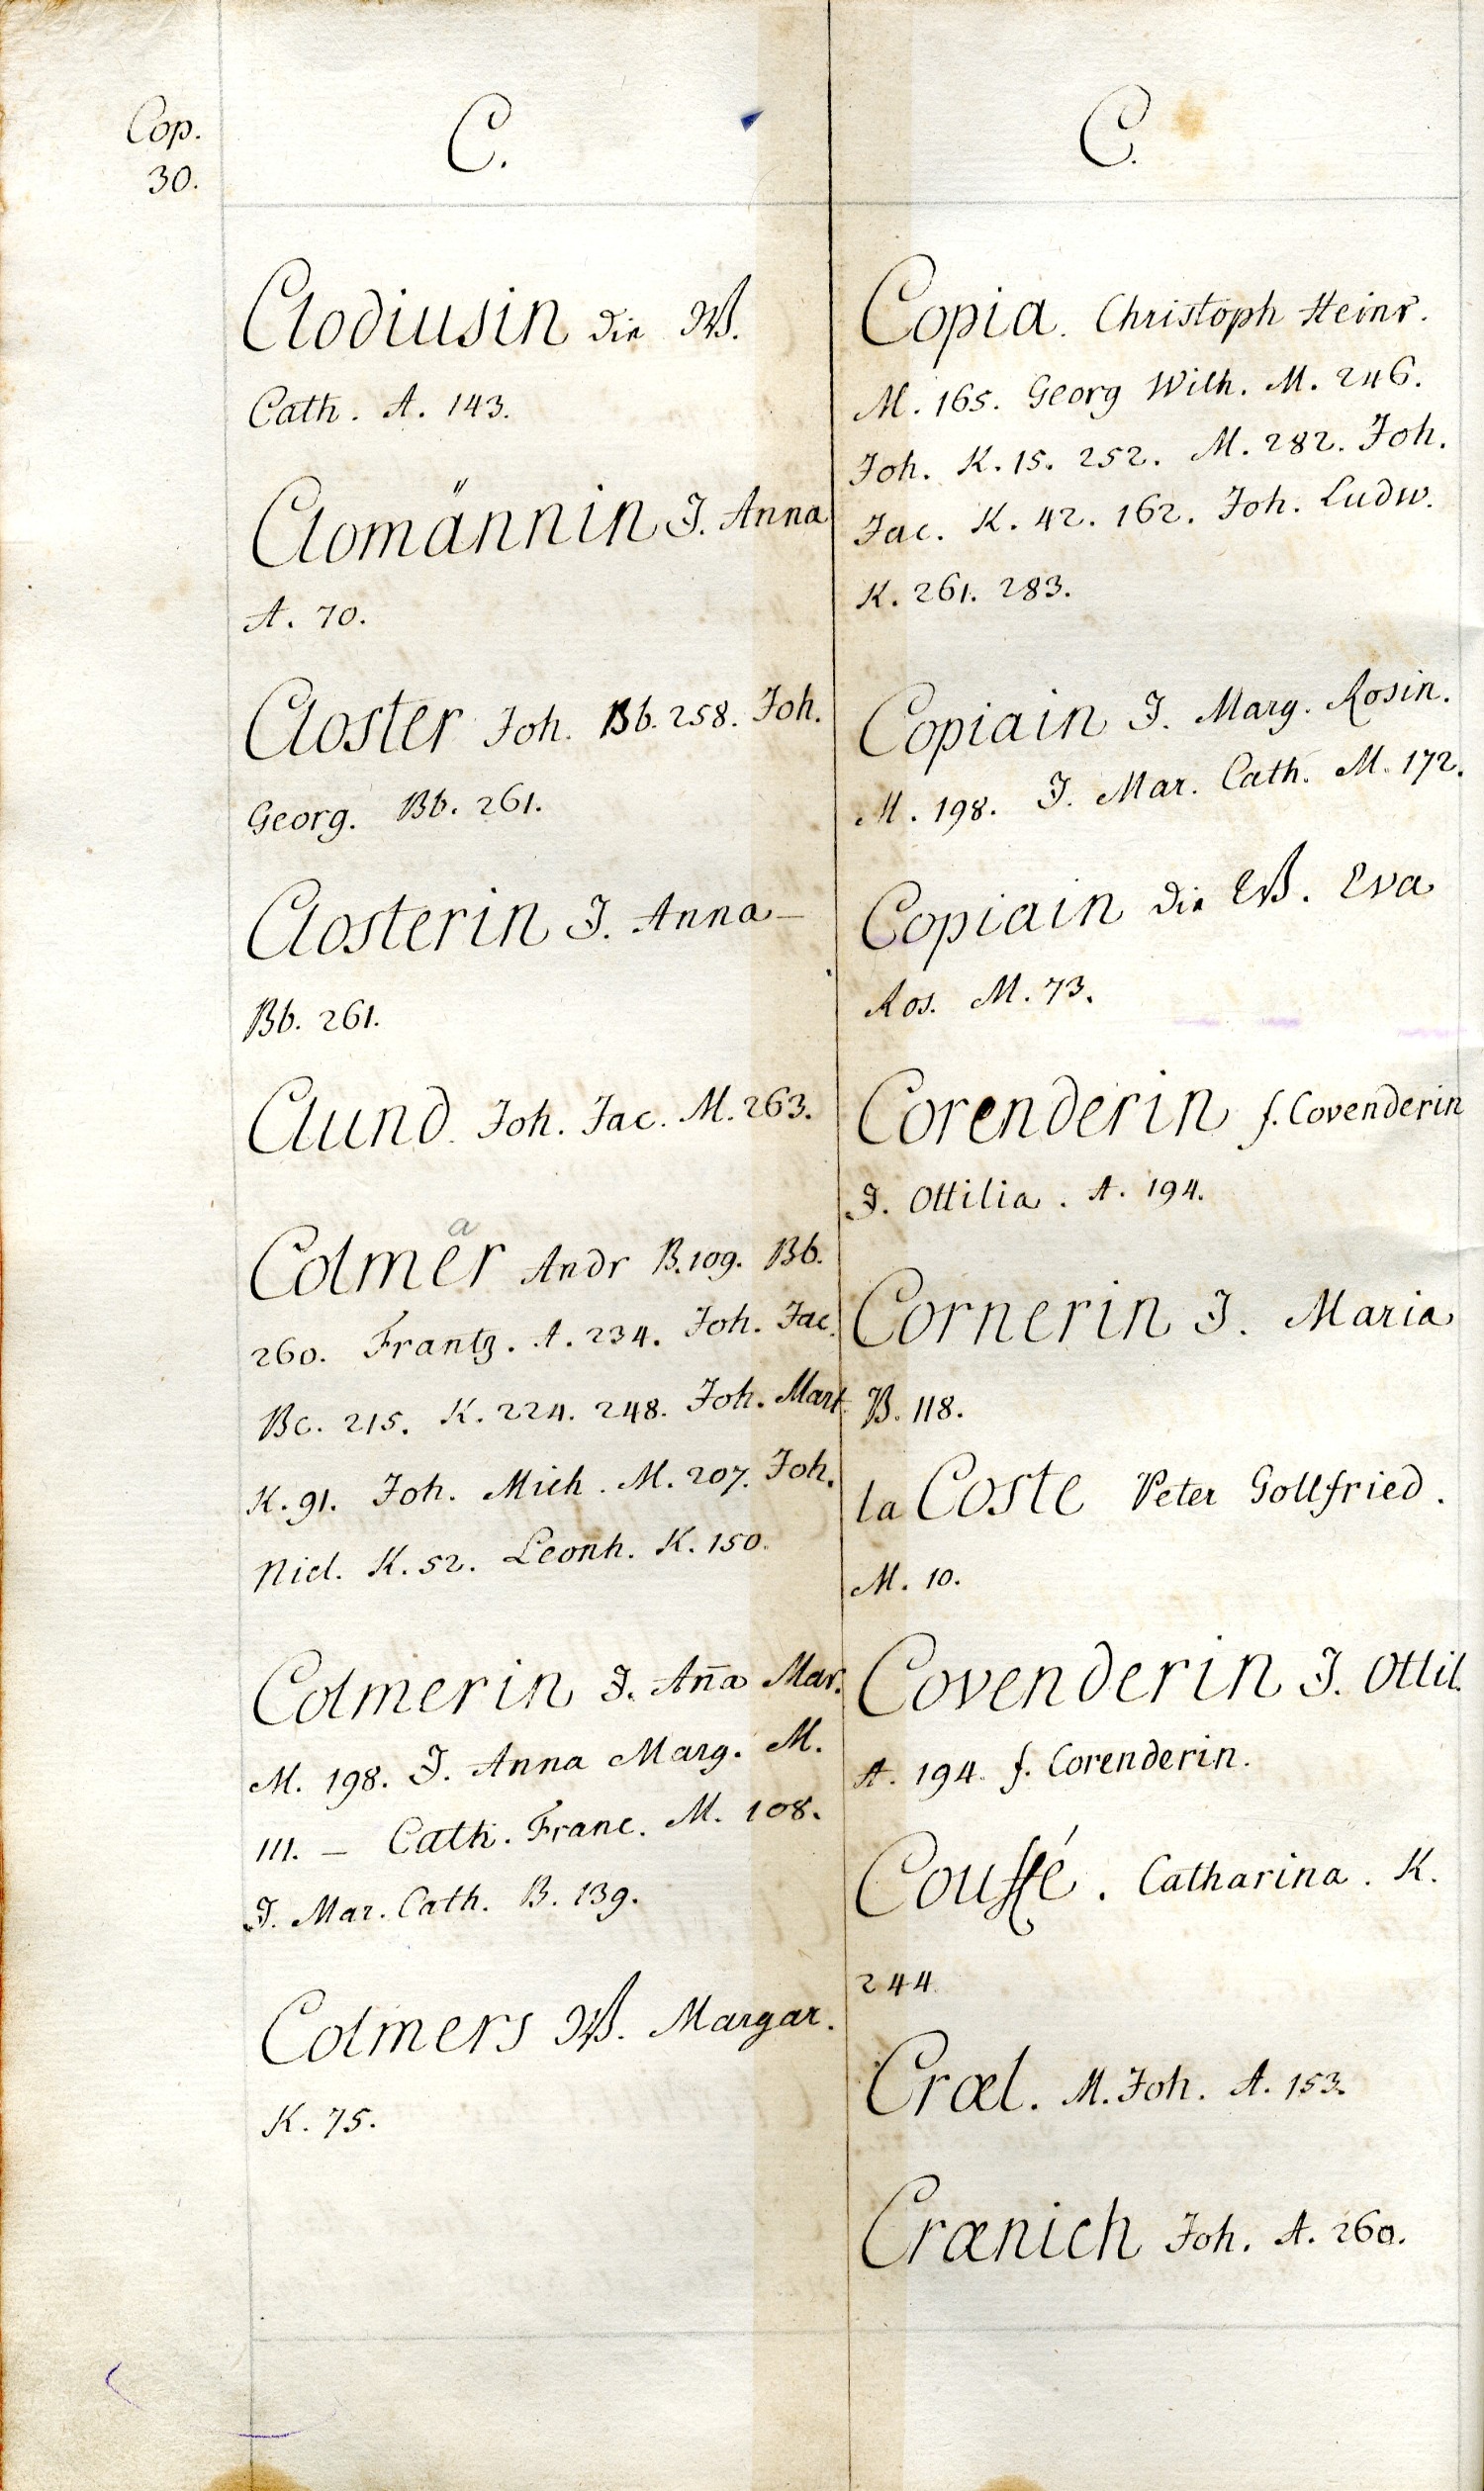 Cop.
30.
C.
Clodiusin die W.
Cath. A. 143.
Clomännin J. Anna
A. 70.
Closter Joh. Bb. 258. Joh.
Georg. Bb. 261.
Closterin J. Anna –
Bb. 261.
Clund. Joh. Jac. M. 263.
a
Colmer Andr B. 109. Bb.
260. Frantz. A. 234. Joh. Jac.
Bc. 215. K. 224. 248. Joh. Mart.
K. 91. Joh. Mich. M. 207. Joh.
Nicl. K. 52. Leonh. K. 150.
Colmerin J. Aña Mar.
M. 198. J. Anna Marg. M.
111. – Cath. Franc. M. 108.
J. Mar. Cath. B. 139.
Colmers W. Margar.
K. 75.
C.
Copia. Christoph Heinr.
M. 165. Georg Wilh. M. 246.
Joh. K. 15. 252. M. 282. Joh.
Jac. K. 42. 162. Joh. Ludw.
K. 261. 283.
Copiain J. Marg. Rosin.
M. 198. J. Mar. Cath. M. 172.
Copiain die W. Eva
Ros. M. 73.
Corenderin f. Covenderin
J. Ottilia. A. 194.
Cornerin J. Maria
B. 118.
la Coste Peter Gottfried.
M. 10.
Covenderin J. Ottil.
A. 194. f. Corenderin.
Couſſé. Catharina. K.
244.
Cræl. M. Joh. A. 153.
Crænich Joh. A. 260.